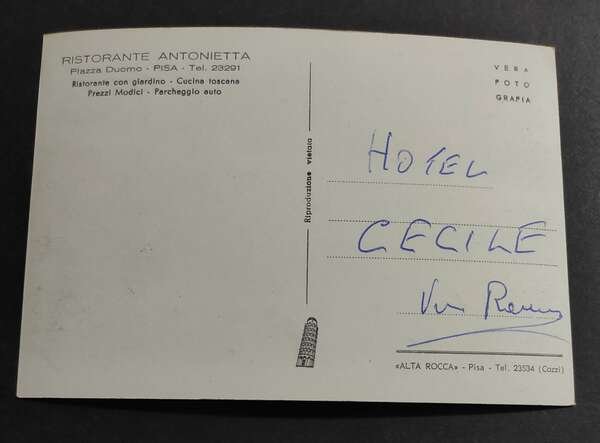 RISTORANTE ANTONIETTA
Piazza Duomo - PISA - Tel. 23291
Ristorante con giardino - Cucina toscana
Prezzi Modici - Parcheggio auto
Riproduzione vietata
VERA
FOTO
GRAFIA
HOTEL
CECILE
Via
«ALTA ROCCA» - Pisa - Tel. 23534 (Cozzi)